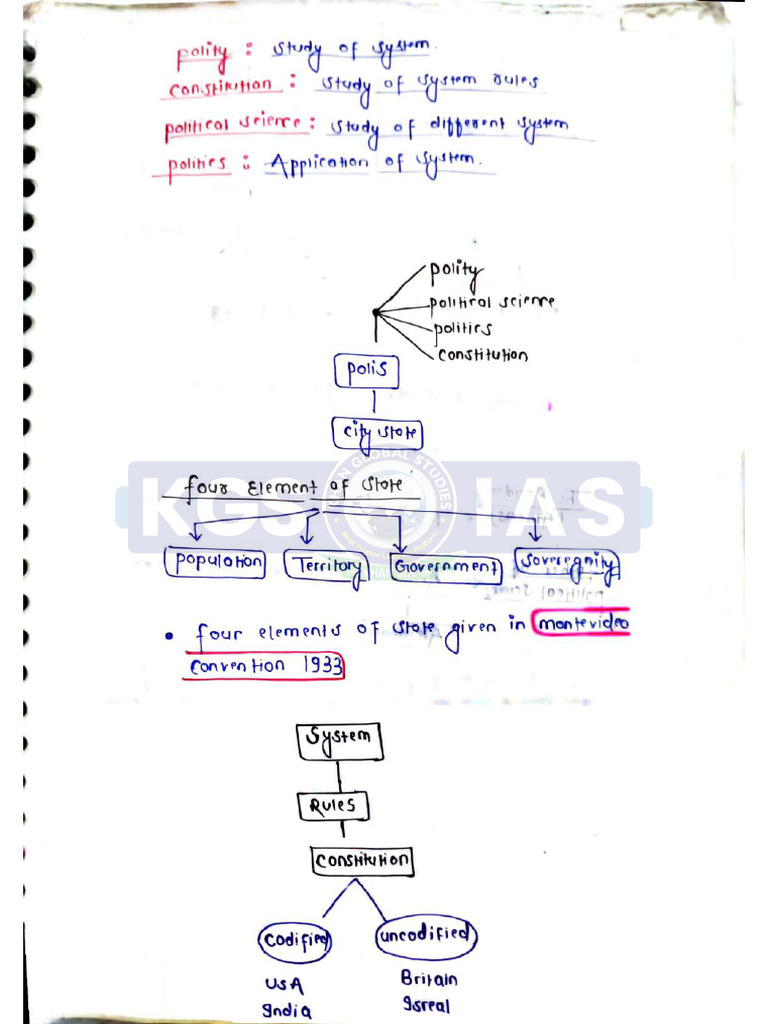 polity : study of system.
constitution : study of system rules
political science : study of different system
politics : Application of system.
polity
political science
politics
constitution
polis
city state
four Element of state
KGS IAS
KHAN GLOBAL STUDIES
population Territory Government Sovereignity
• four elements of state given in montevideo
convention 1933
System
Rules
constitution
codified uncodified
USA Britain
India Isreal